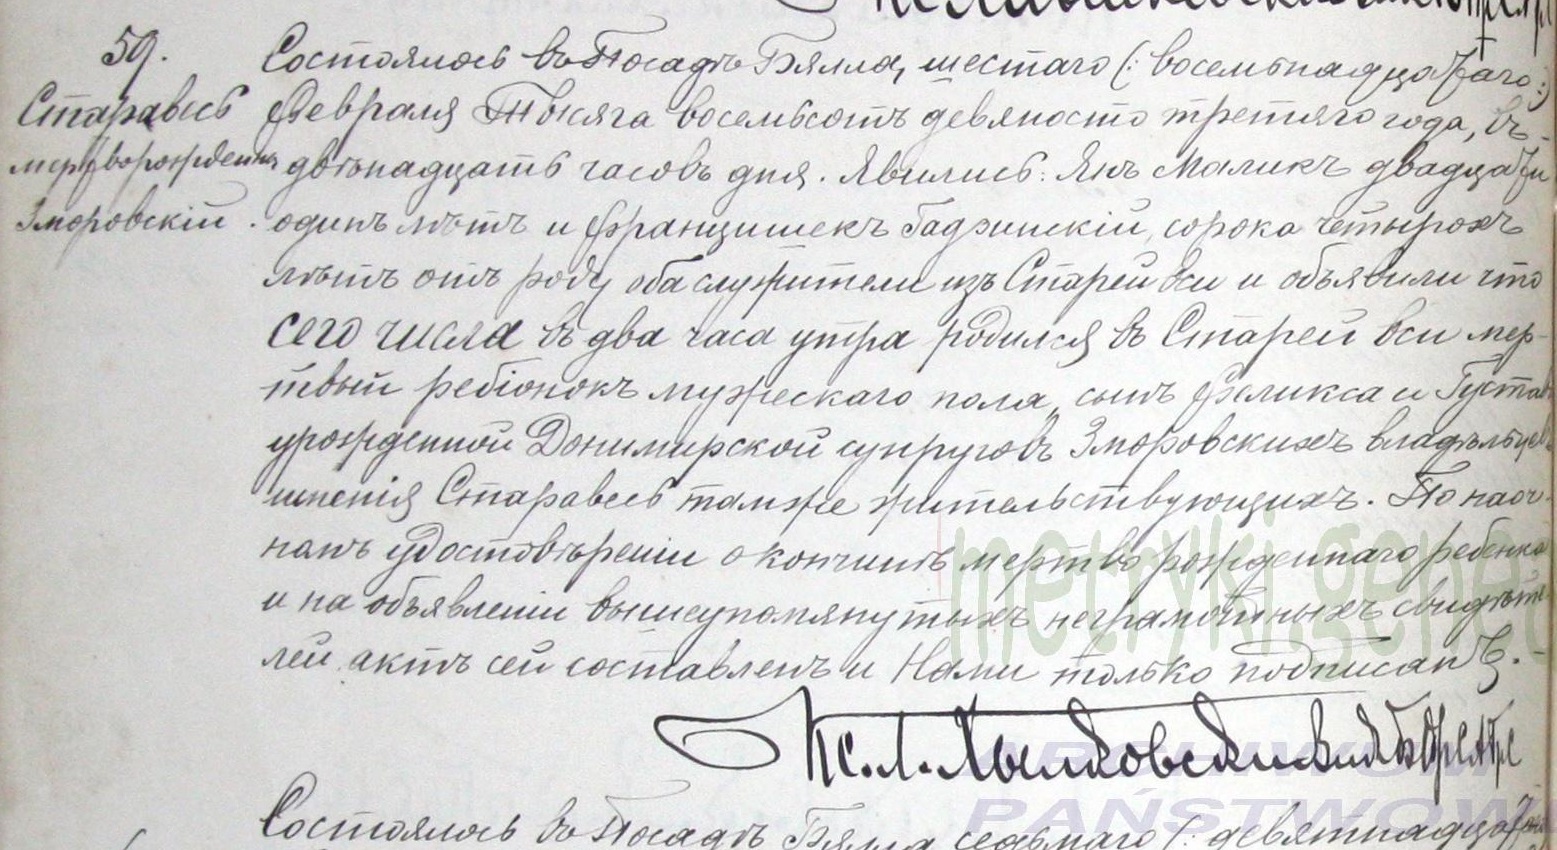 59.
Старавесь
мертворожденный
Зморовскій.
Состоялось въ Посадѣ Бялла, шестаго (: восемьнадцатаго :)
Февраля Тысяча восемьсотъ девяносто третяго года, въ
двѣнадцать часовъ дня. Явились: Янъ Маликъ двадцати
одинъ лѣтъ и Францишекъ Гадзинскій, сорока четырохъ
лѣтъ отъ роду оба служители изъ Старей вси и объявили что
сего числа въ два часа утра родился въ Старей вси мер-
твый ребіонокъ мужескаго пола, сынъ Феликса и Густавы
урожденной Донимирской супруговъ Зморовскихъ владѣльцевъ
имѣнія Старавесь тамже жительствующихъ. По наоч-
номъ удостовѣреніи о кончинѣ мертворожденнаго ребенка
и на объявленіи вышеупомянутыхъ неграмотныхъ свидѣте-
лей актъ сей составленъ и Нами только подписанъ. -
Кс. Л.
metryki.gene
ARCHIWUM
PAŃSTWOW
Состоялось въ Посадѣ Бялла седьмаго (: девятнадцатаго